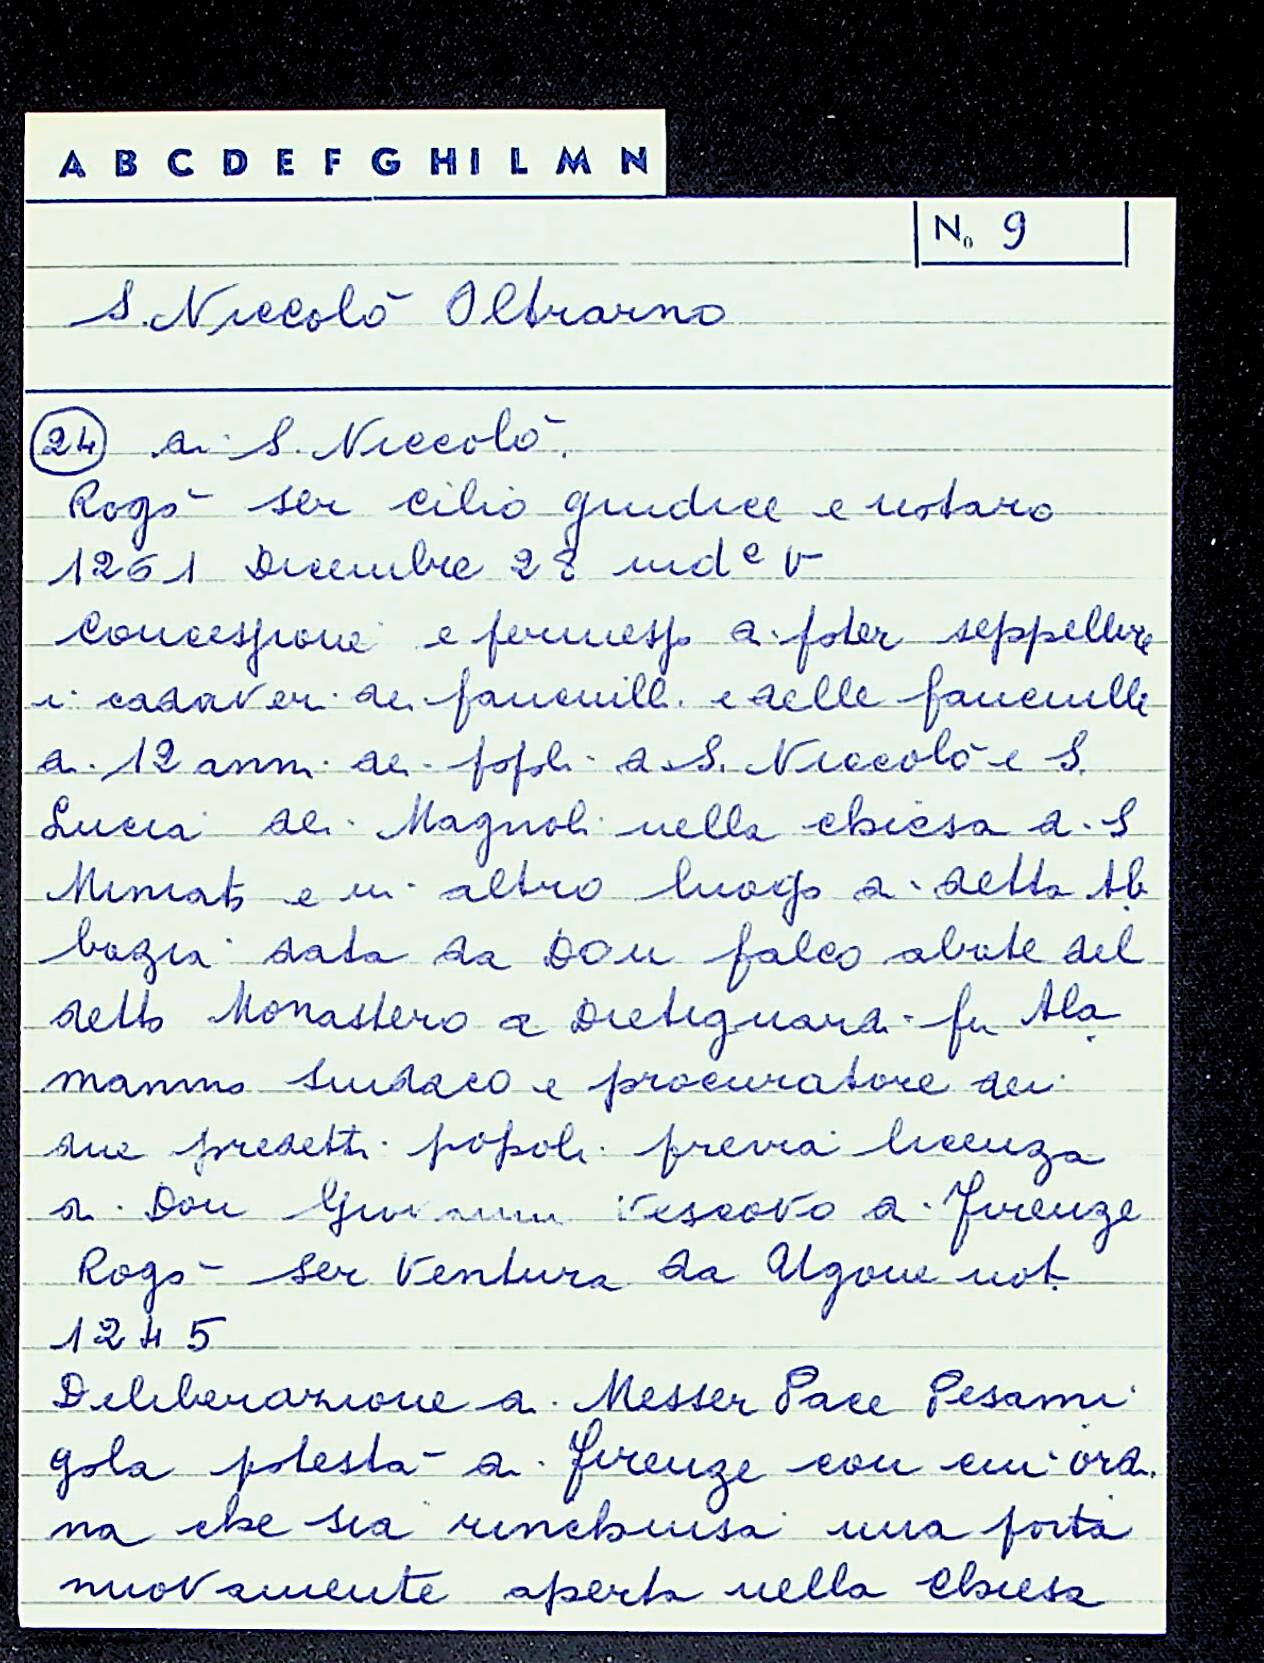 A B C D E F G H I L M N
No 9
S. Niccolò Oltrarno
24 di S. Niccolò.
Rogò ser Cilio giudice e notaro
1261 Dicembre 28 indᵉ V
Concessione e permesso di poter seppellire
i cadaveri dei fanciulli e delle fanciulle
di 12 anni dei popoli di S. Niccolò e S.
Lucia dei Magnoli nella chiesa di S
Miniato e in altro luogo di detta Ab
bazia data da Don Falco abate del
detto Monastero a Dietiguardi fu Ala
manno Sindaco e procuratore dei
due predetti popoli previa licenza
di Don Giovanni Vescovo di Firenze
Rogò ser Ventura da Ugone not.
1245
Deliberazione di Messer Pace Pesami
gola potestà di Firenze con cui ordi
na che sia rinchiusa una porta
nuovamente aperta nella chiesa